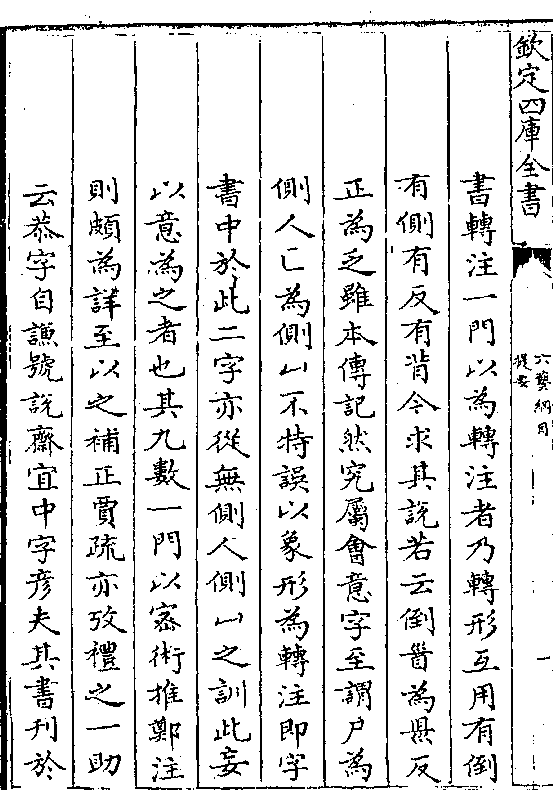 欽定四庫全書
六藝綱目
提要
書轉注一門以為轉注者乃轉形互用有倒
有側有反有背今求其說若云倒𥄉為㬎反
正為乏雖本傳記然究屬會意字至謂尸為
側人匸為側凵不特誤以象形為轉注即字
書中於此二字亦從無側人側凵之訓此妄
以意為之者也其九數一門以密術推鄭注
則頗為詳至以之補正賈疏亦攷禮之一助
云恭字自謙號說齋宜中字彦夫其書刊於